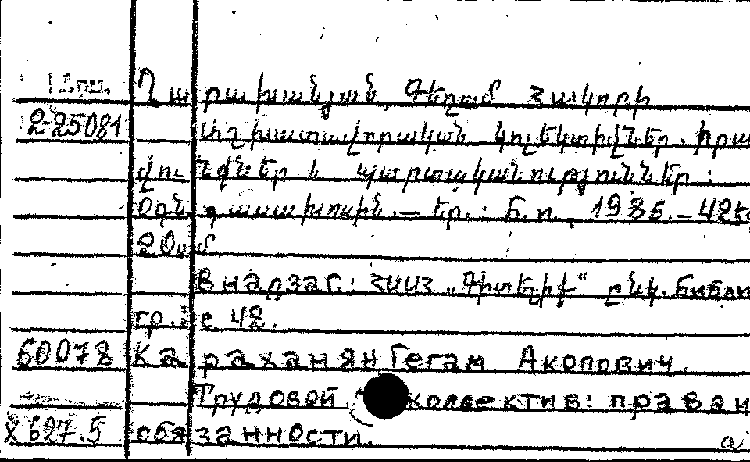 Ղարախանյան Գեղամ Հակոբի
225081 Աշխատավորական կոլեկտիվներ. իրա
վունքներ և պարտականություններ :
Օգն. դասախոսին. — Եր. : Б. и., 1985. — 42 էջ
20 սմ
В надзаг.: ՀՍՍՀ „Գիտելիք“ ընկ. Библи
гр.: с 42.
60078 Караханян Гегам Акопович.
Трудовой коллектив: права и
X 627.5 обязанности.